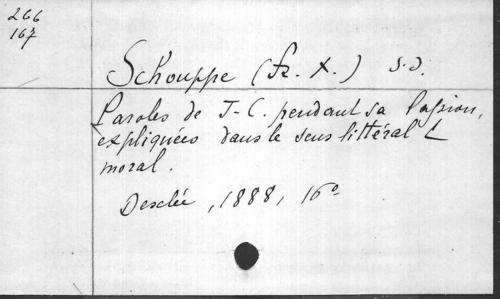 266
167
Schouppe (Fr. X.) S.J.
Paroles de J-C. pendant sa Passion,
expliquées dans le sens littéral &
moral.
Desclée, 1888, 16º